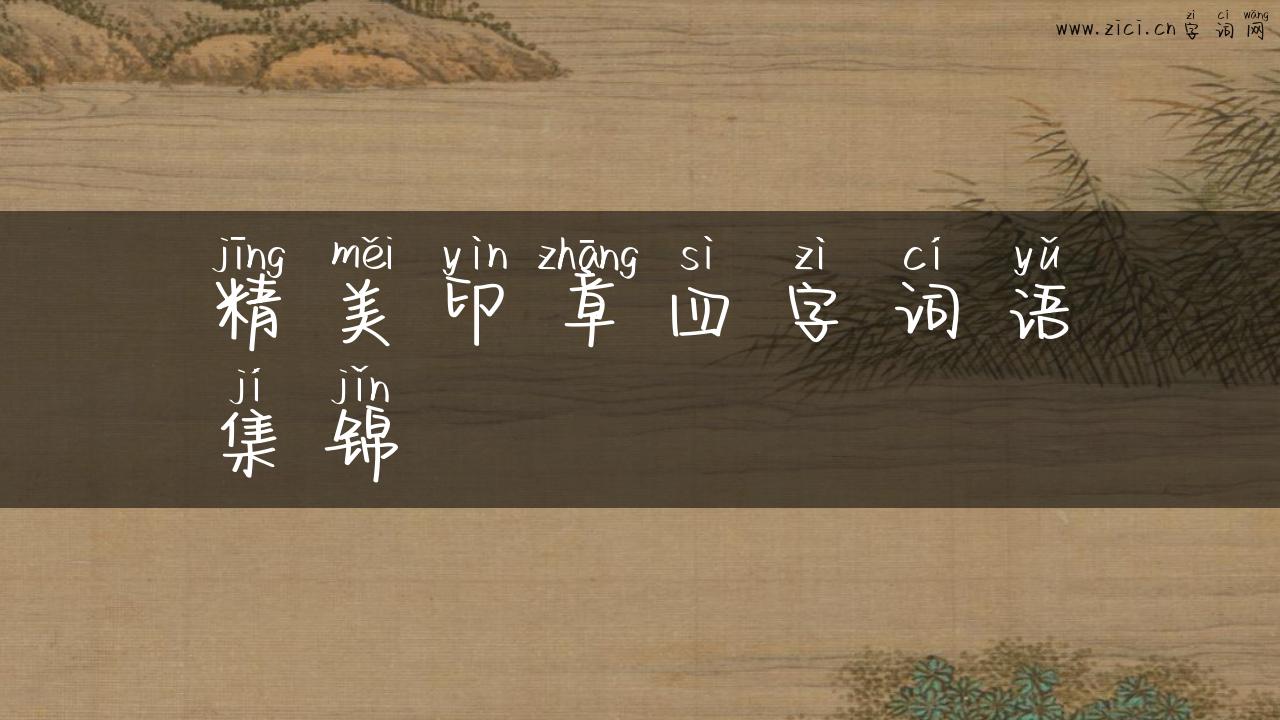 zì cí wǎng
www.zici.cn字词网
jīng měi yìn zhāng sì zì cí yǔ
精美印章四字词语
jí jǐn
集锦